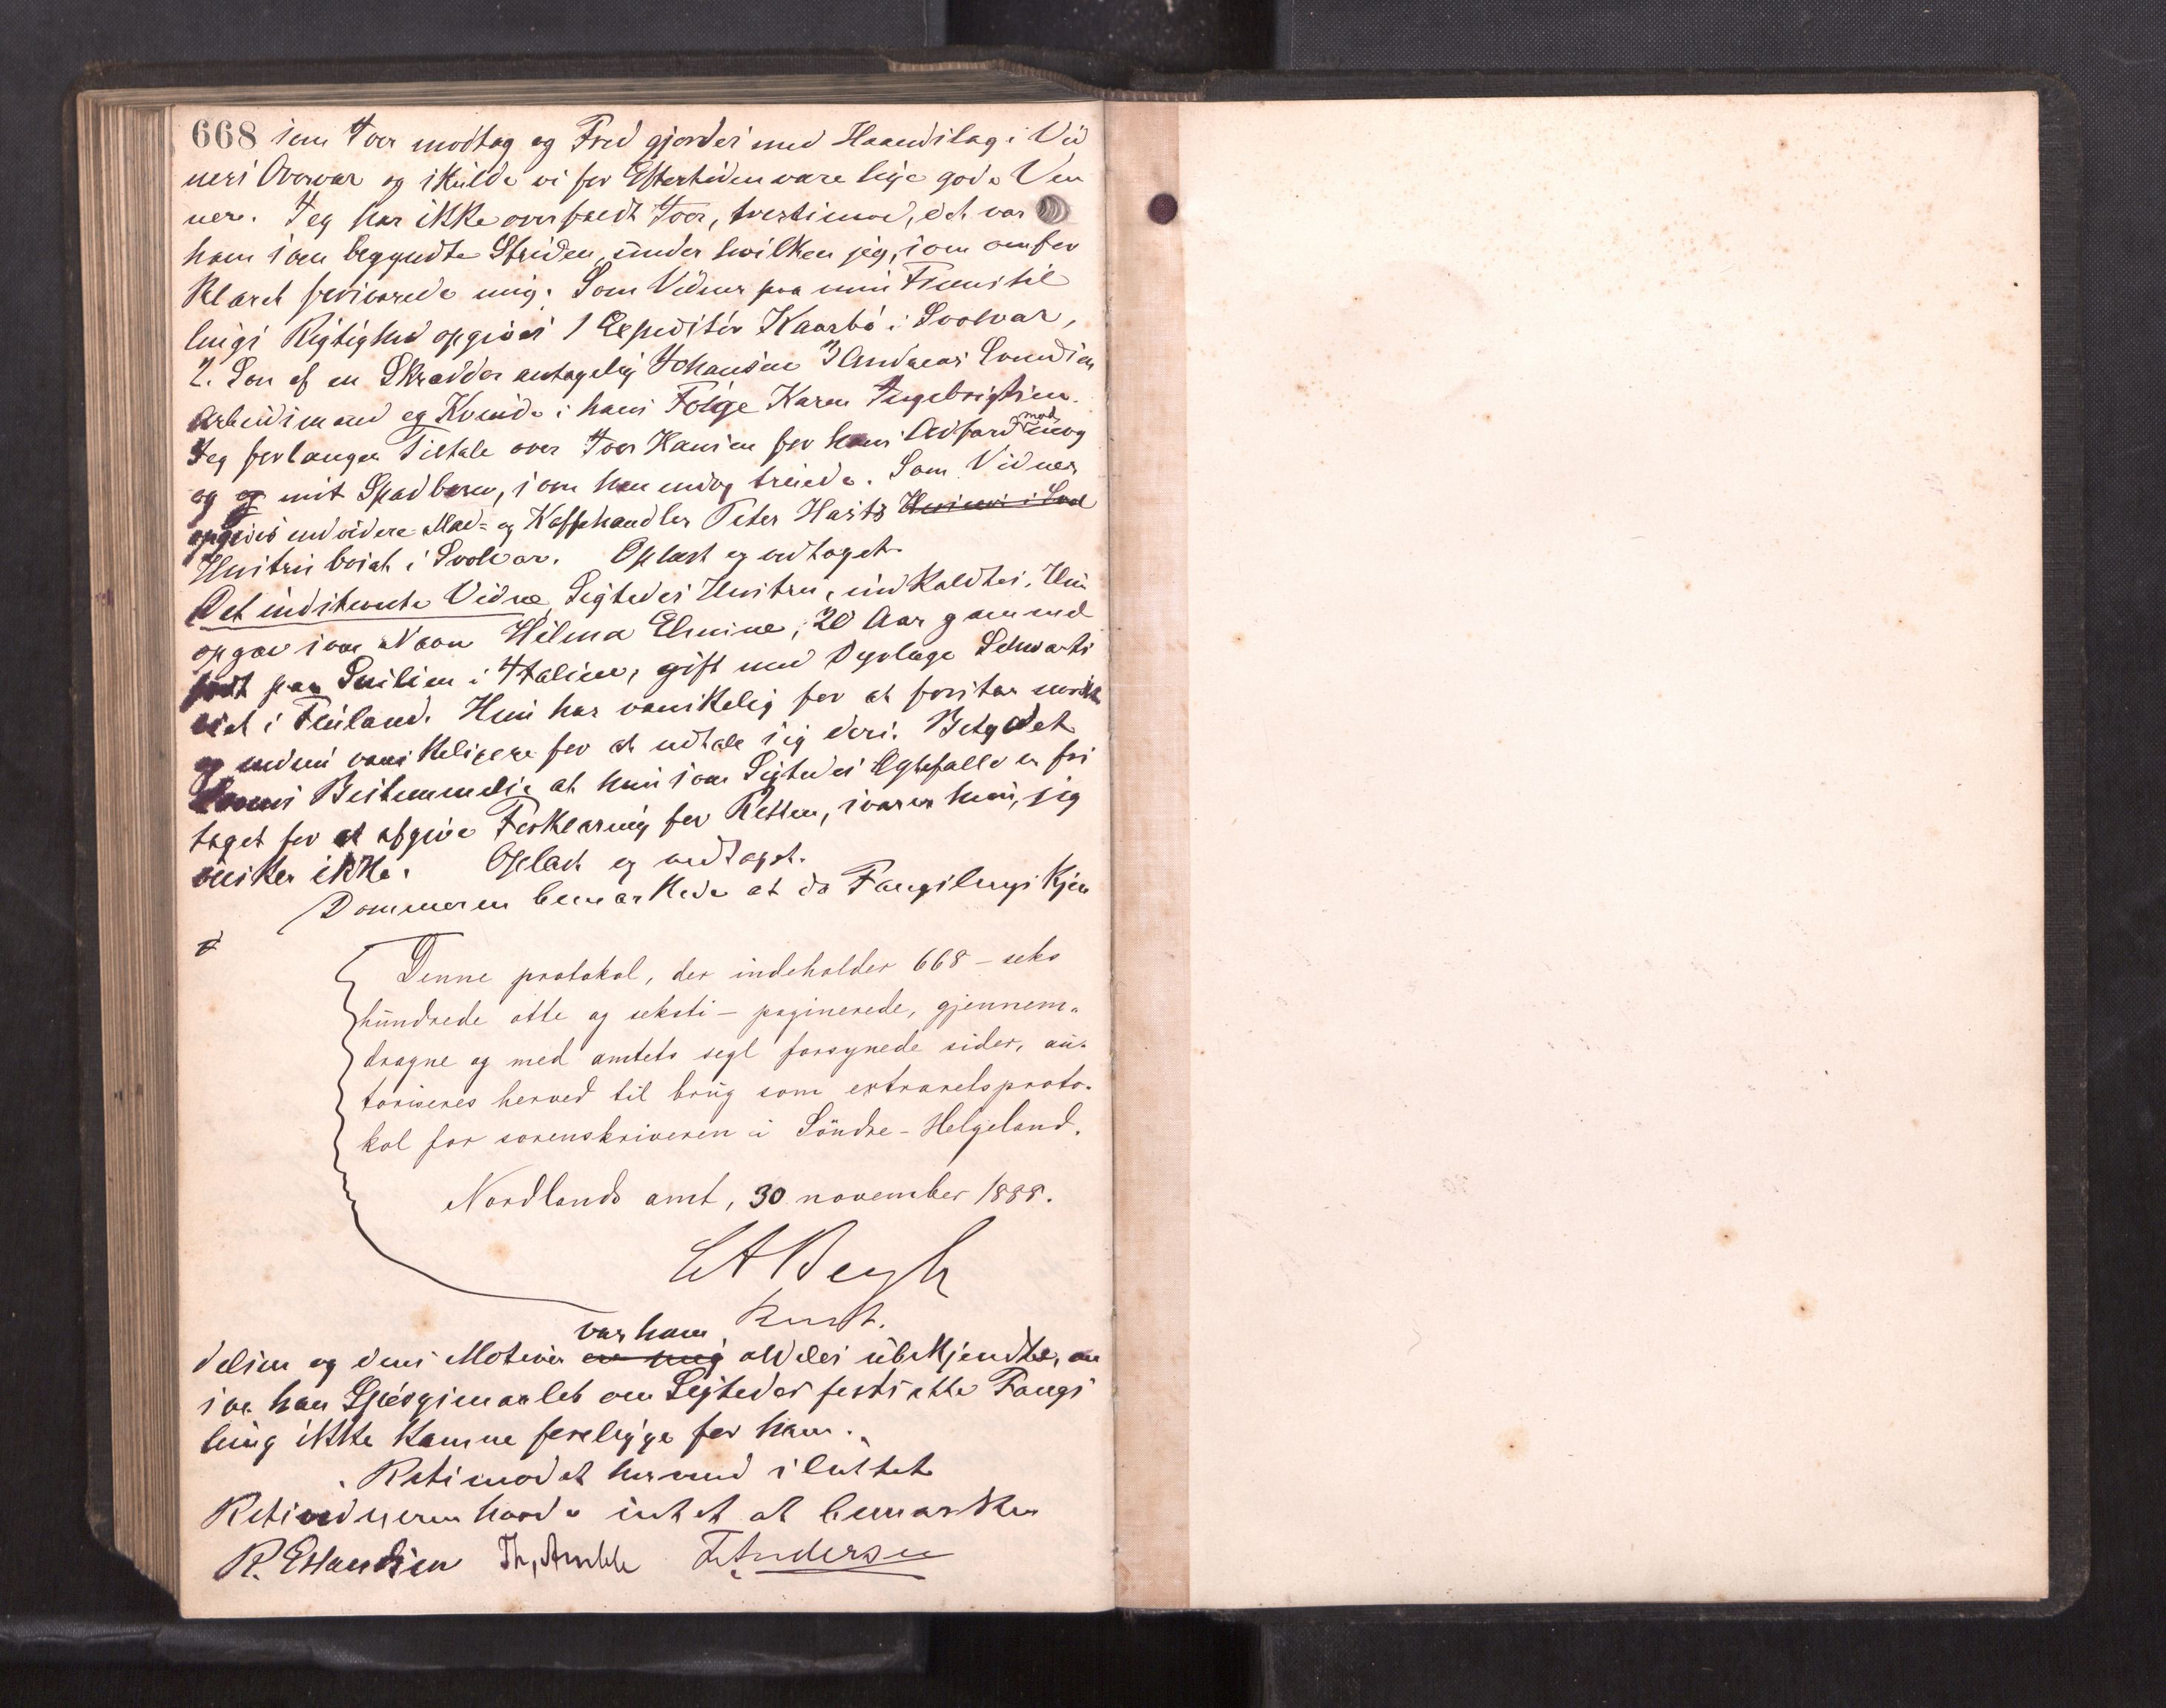 668 som Ivar modtog og Fred gjordes med Haandslag i Vid
ners Overvær og skulde vi for Eftertiden være lige gode Ven
ner. Jeg har ikke overfaldt Ivar, tvertimod, det var
ham som begyndte Striden, under hvilken jeg, som omfor
klaret forsvarede mig. Som Vidner paa min Fremstil
lings Rigtighed opgives 1 Expeditør Kaarbø i Svolvær,
2. Søn af en Skrædder antagelig Johansen 3 Andreas Svendsen
Arbeidsmand og Kvinde i hans Følge Karen Ingebrigtsen.
Jeg forlanger Tiltale over Ivar Hansen for hans Adfærd mod mig
og og mit Spædbarn, som han endog truede. Som Vidner
opgives endvidere Mad- og Kaffehandler Peter Hartz
Hustru bosat i Svolvær. Oplæst og vedtaget.
Det indstevnte Vidne, Sigtedes Hustru, indkaldtes. Hun
opgav som Navn Hilma Elmine, 20 Aar gammel
født paa Sicilien i Italien, gift med Dyrlæge Schwartz
i Finland. Hun har vanskelig for at forstaa norsk
og endnu vanskeligere for at udtale sig deri. Betydet
Lovens Bestemmelse at hun som Sigtedes Ægtefælle er fri
taget for at afgive Forklaring for Retten, svarer hun, jeg
ønsker ikke. Oplæst og vedtaget.
Dommeren bemærkede at da Fængslings Kjen
Denne protokol, der indeholder 668 – seks
hundrede otte og seksti – paginerede, gjennem-
dragne og med amtets segl forsynede sider, au-
toriseres herved til brug som extraretsproto-
kol for sorenskriveren i Söndre-Helgeland.
Nordlands amt, 30 november 1888.
Const.
var ham
delsen og dens Motiver er mig aldeles ubekjendte, an
saa han Spørgsmaalet om Sigtedes fortsatte Fængs
ling ikke kunne foreligge for ham.
Retsmødet hermed sluttet
Retsvidnerne havde intet at bemærke
R. Erlandsen Th. Amble F. Andersen